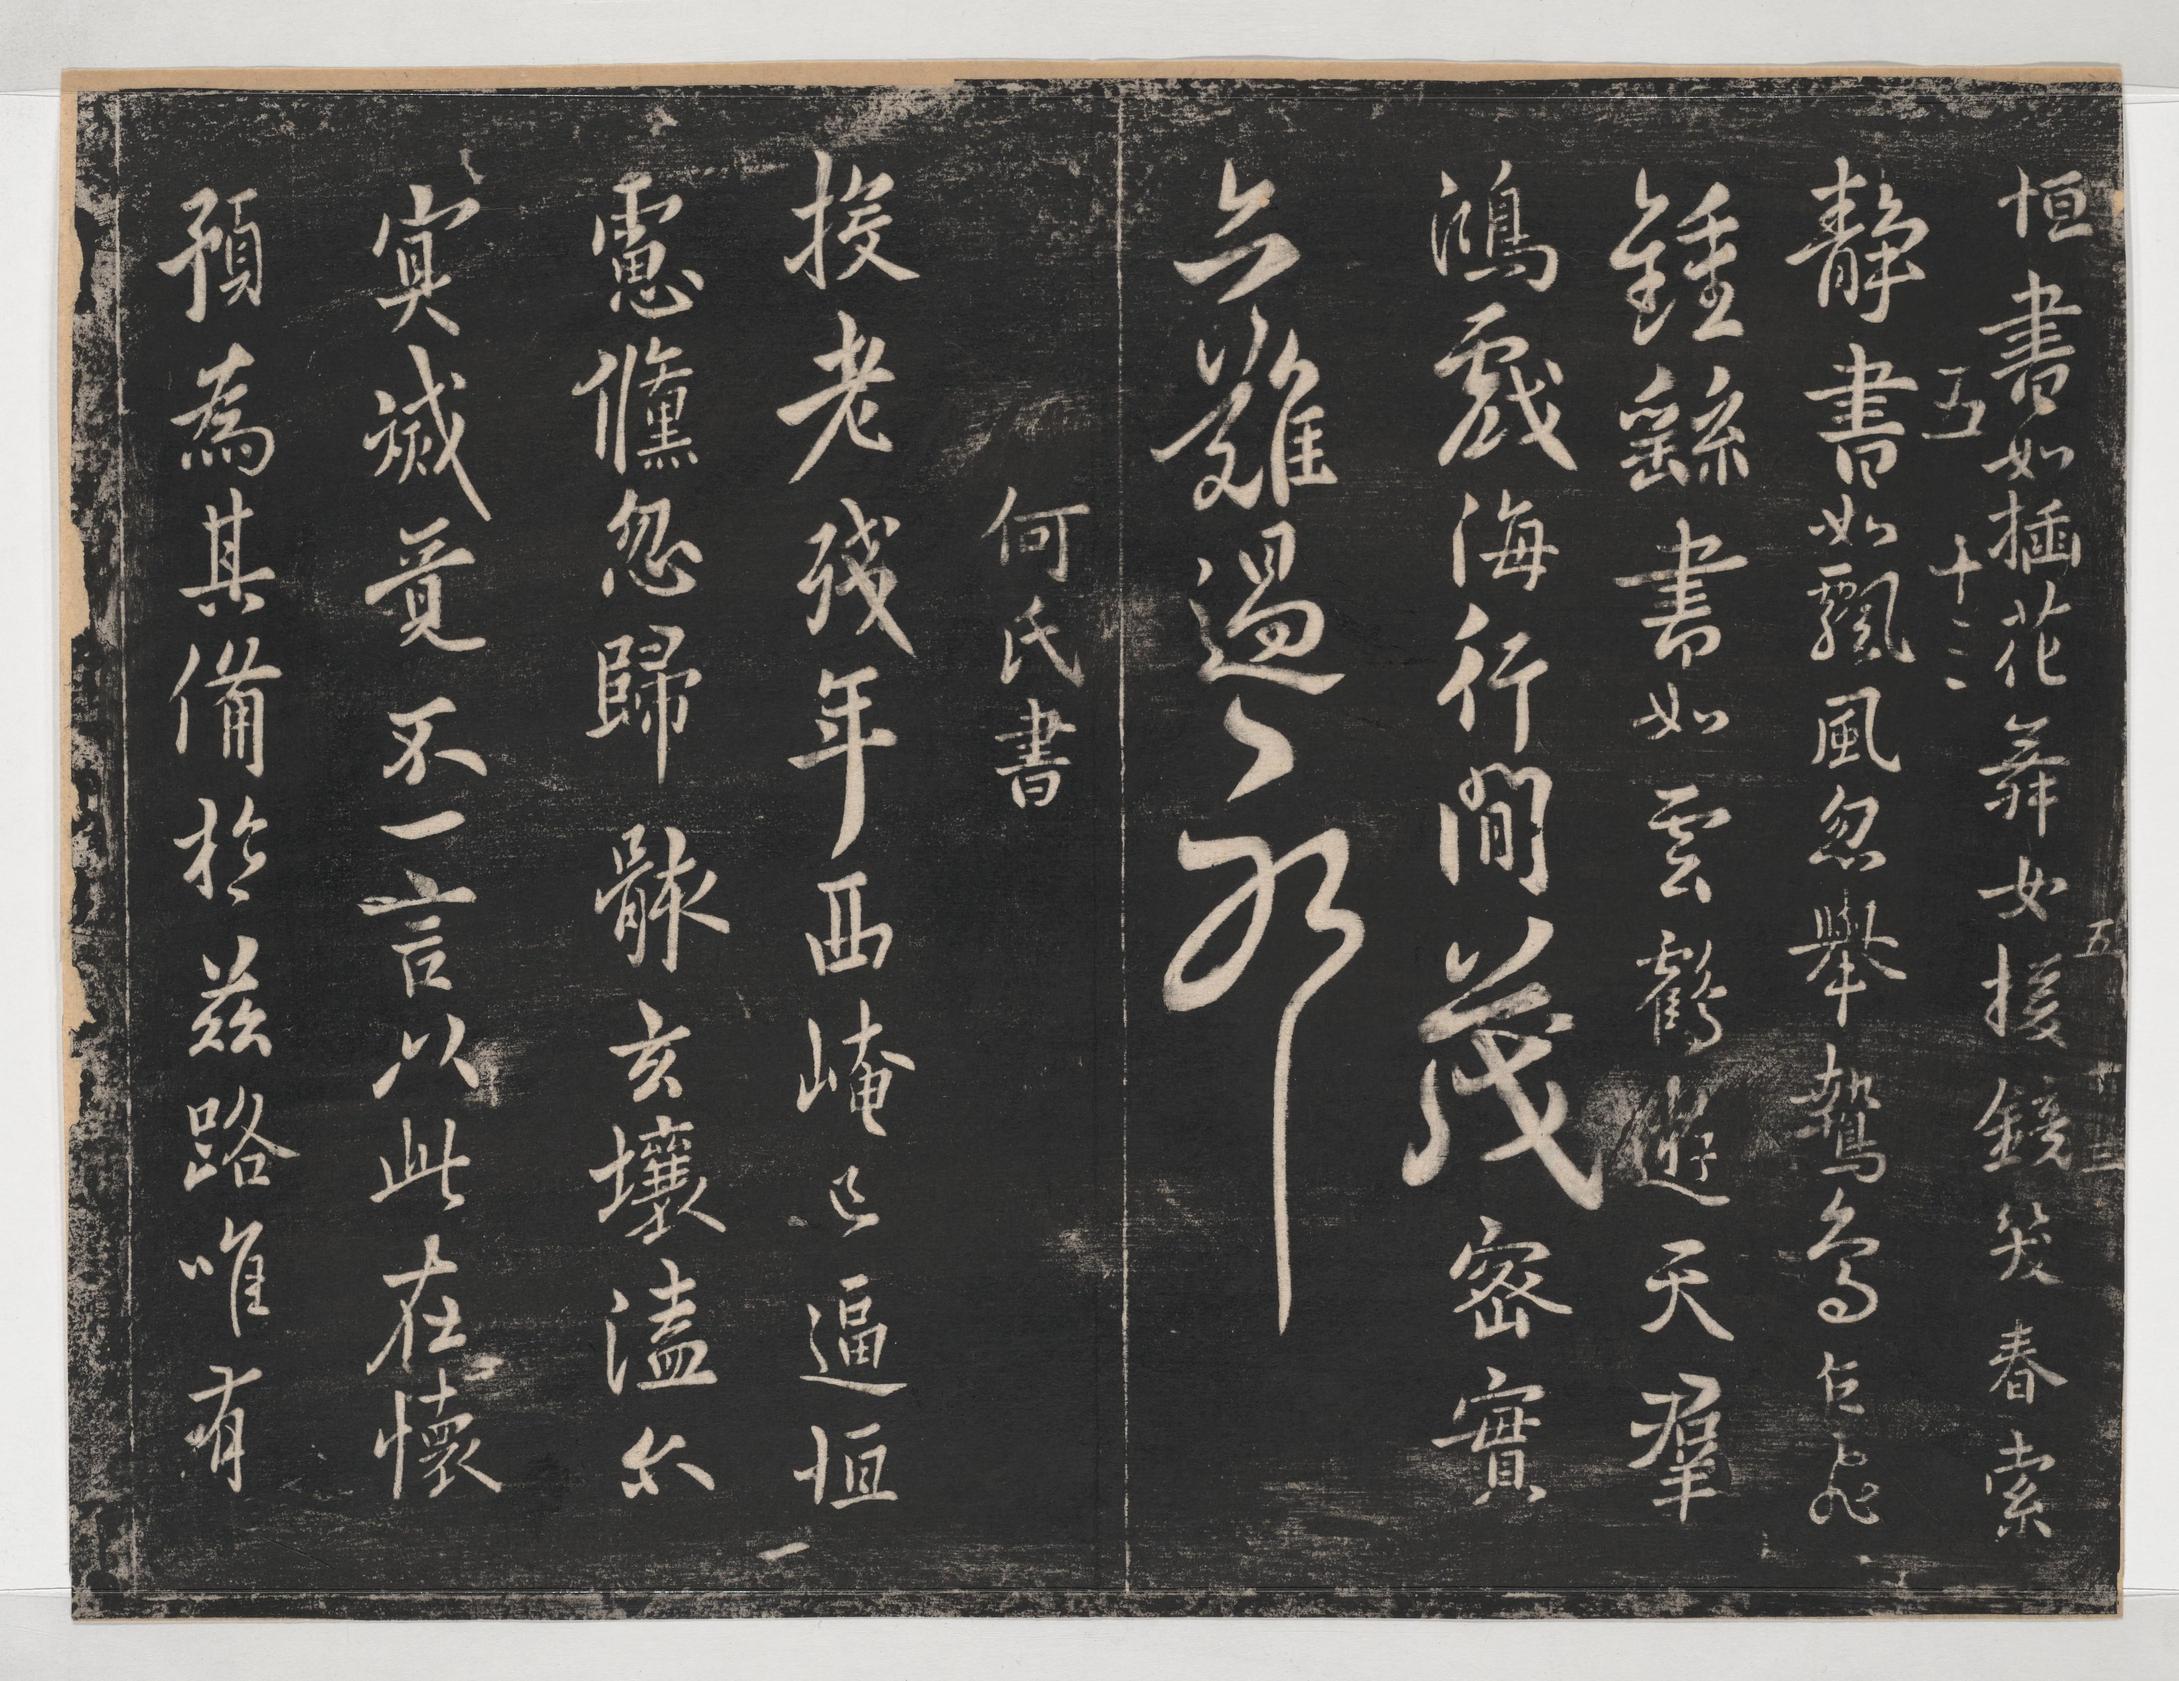 五 十三
恒書如插花舞女援鏡笑春索
五 十三
靜書如飄風忽舉鷙鳥乍飛
鍾繇書如雲鶴遊天群
鴻戲海行間茂密實
亦難過耶
何氏書
投老殘年西崦已逼恒
一
慮儵忽歸骸玄壤溘尒
冥滅竟不一言以此在懷
預為其備於茲路唯有